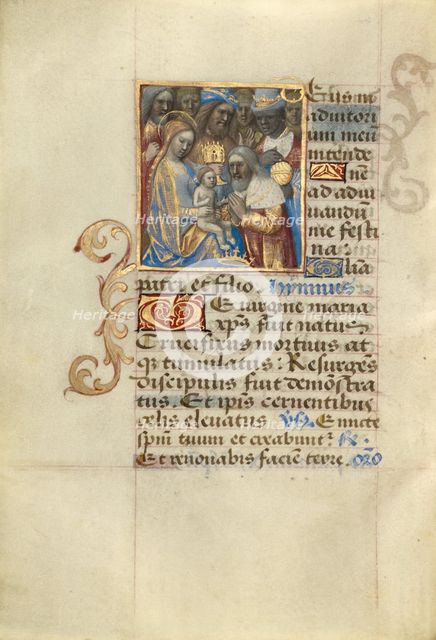 Eus in
adiutori
um meū
intende
ne
ad adiu
uandū
me festi
na lia
patri et filio. hymnus
E uirgine maria
xp̄s fuit natus
Crucifixus mortuus at
q̄ tumulatus: Resurgēs
discipulis fuit demōstra
tus. Et ip̄is cernentibus
celis eleuatus v̄s. Emicte
sp̄m tuum et creabunt͛ R̄.
Et renouabis faciem terre. oro